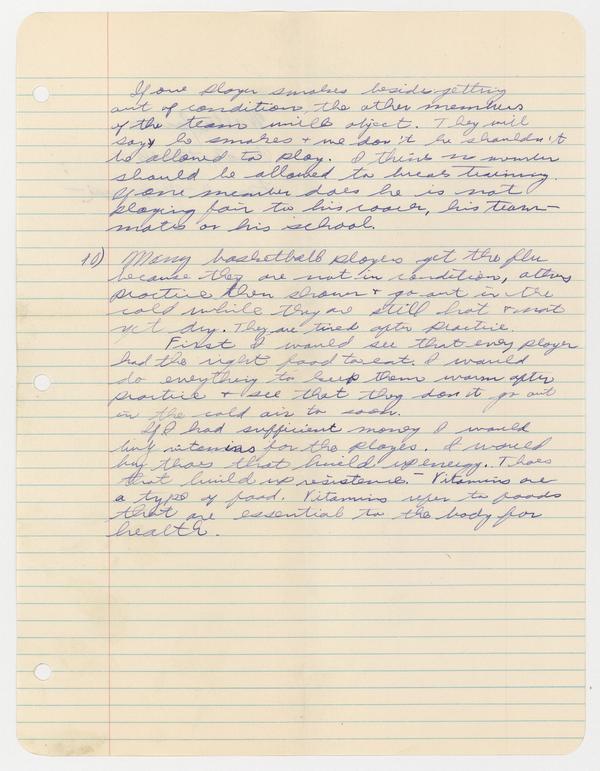 If one player smokes beside getting
out of condition, the other members
of the team will object. They will
say, he smokes + we don't he shouldn't
be allowed to play. I think no member
should be allowed to break training.
If one member does he is not
playing fair to his coach, his team-
mates or his school.
10) Many basketball players get the flu
because they are not in condition, others
practice then shower + go out in the
cold while they are still hot + not
yet dry. They are tired after practice.
First I would see that every player
had the right food to eat. I would
do everything to keep them warm after
practice + see that they don't go out
in the cold air to soon.
If I had sufficient money I would
buy vitamins for the players. I would
buy thoes that build up energy. Thoes
that build up resistence - Vitamins are
a type of food. Vitamins refer to foods
that are essential to the body for
health.